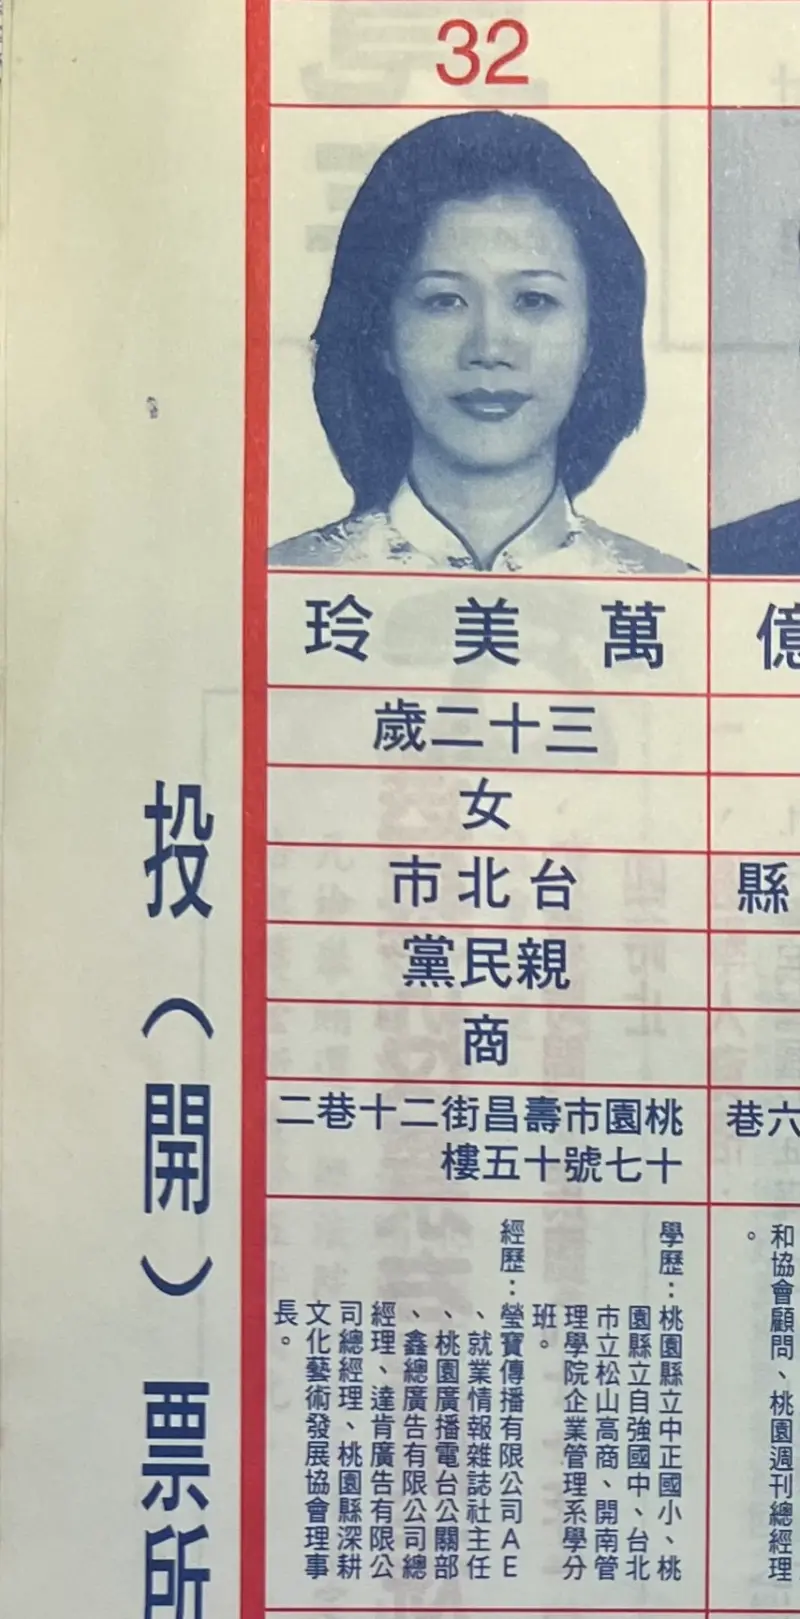 32
萬美玲
三十二歲
女
台北市
親民黨
商
桃園市壽昌街二十巷二
十七號十五樓
學歷：桃園縣立中正國小、桃
園縣立自強國中、台北
市立松山高商、開南管
理學院企業管理系學分
班。
經歷：瑩寶傳播有限公司AE
、就業情報雜誌社主任
、桃園廣播電台公關部
、鑫總廣告有限公司總
經理、達肯廣告有限公
司總經理、桃園縣深耕
文化藝術發展協會理事
長。
億
縣
六巷
和協會顧問、桃園週刊總經理
。
投（開）票所